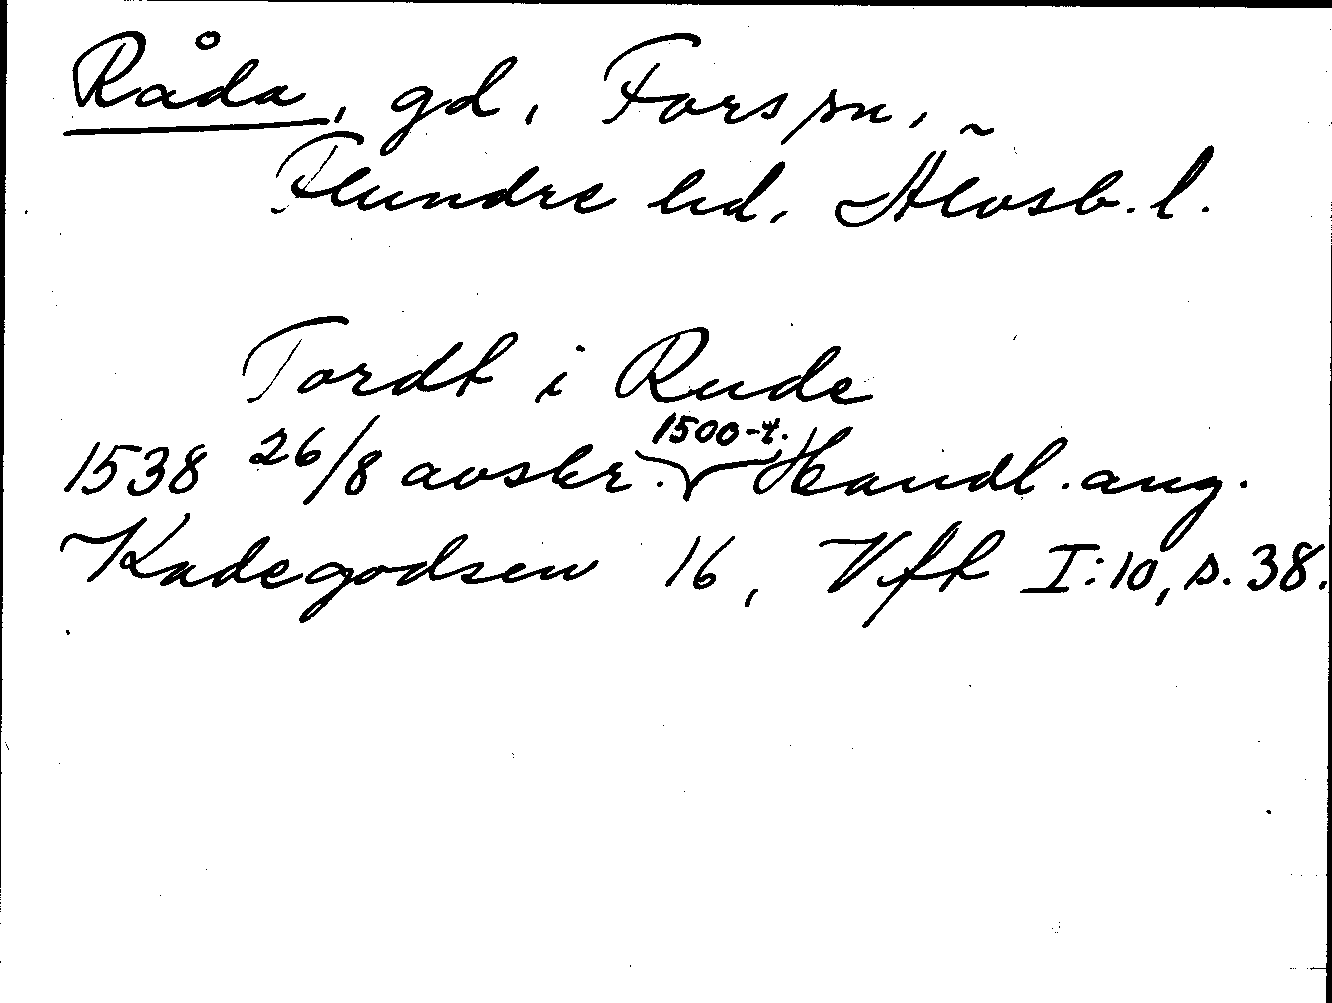 Råda, gd, Fors sn,
Flundre hd, Älvsb. l.
Tordt i Rude
1500-t.
1538 26/8 avskr. Handl. ang.
Kadegodsen 16, Vfh I:10, s. 38.